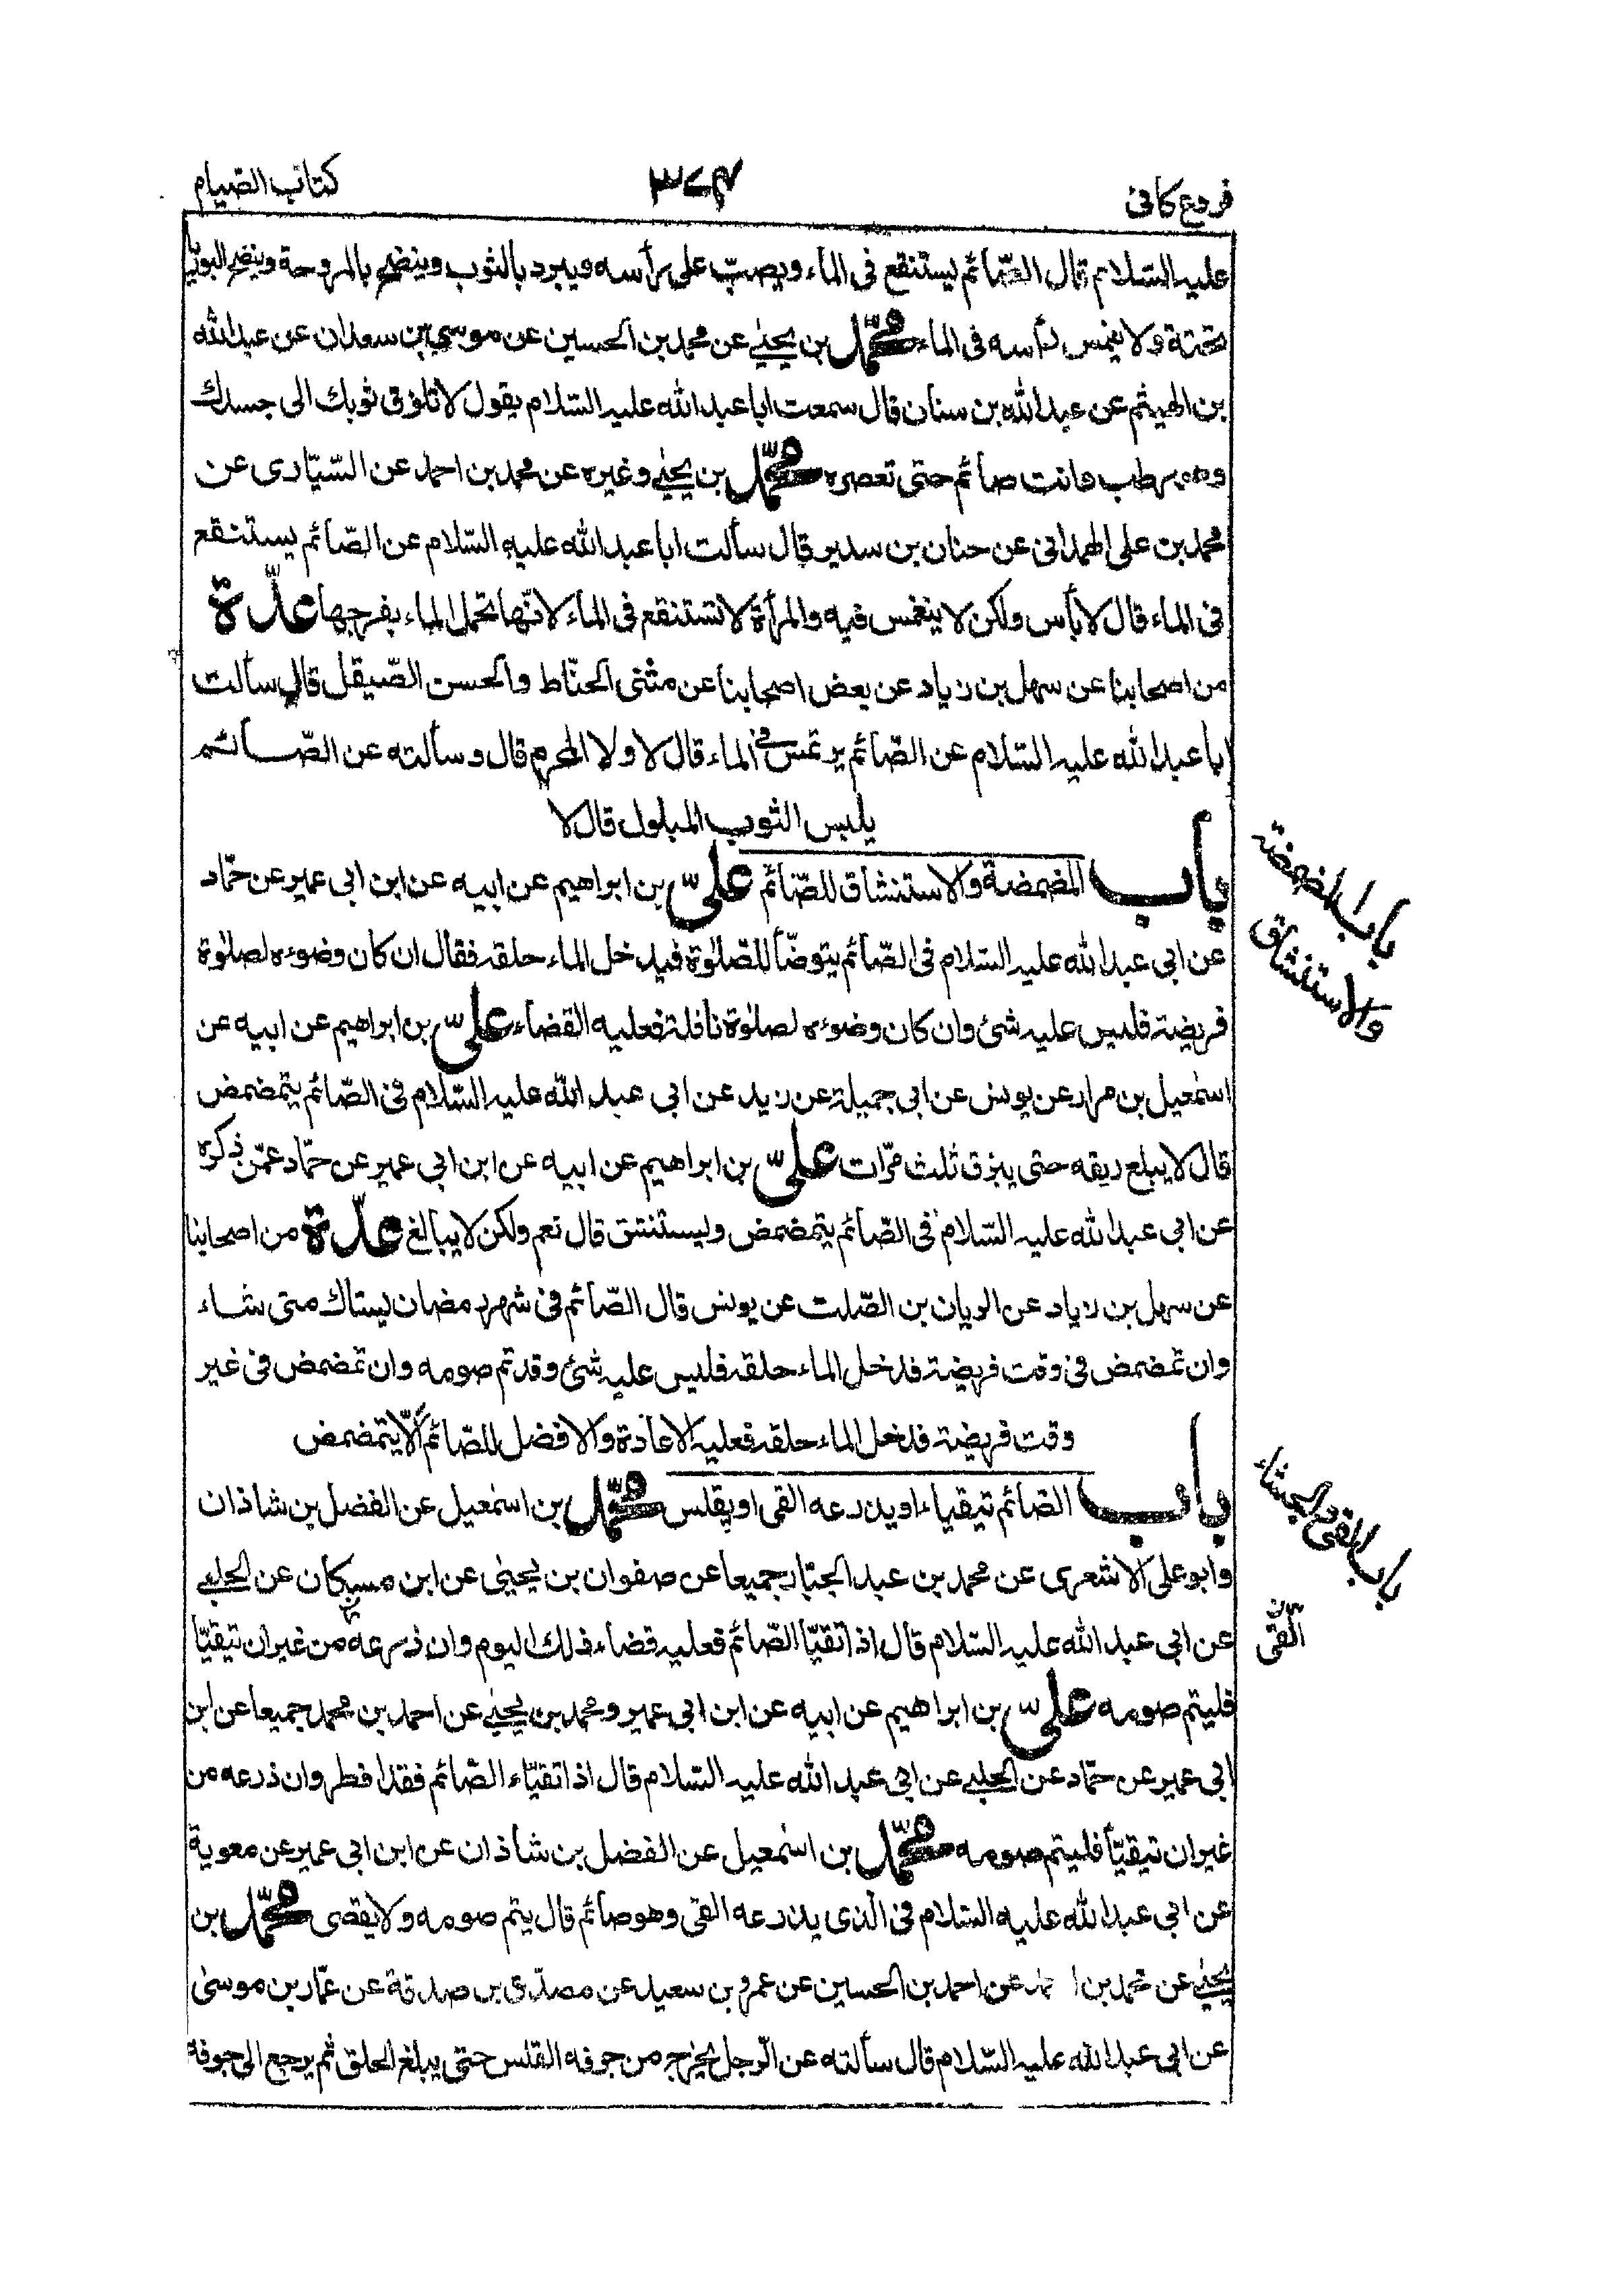 فروع كافى
٣٧٤
كتاب الصّيام
عليه السّلام قال الصّائم يستنقع فى الماء ويصبّ على رأسه ويبرد بالثوب وينضح بالمروحة وينضح البوريا
تحتة ولا يغمس رأسه فى الماء محمّد بن يحيى عن محمد بن الحسين عن موسى بن سعدان عن عبد الله
بن الهيثم عن عبد الله بن سنان قال سمعت ابا عبد الله عليه السّلام يقول لا تلزق ثوبك الى جسدك
وهو رطب وانت صائم حتى تعصره محمّد بن يحيى وغيره عن محمد بن احمد عن السّيّارى عن
محمد بن على الهمدانى عن حنان بن سدير قال سألت ابا عبد الله عليه السّلام عن الصّائم يستنقع
فى الماء قال لا بأس ولكن لا ينغمس فيه والمرأة لا تستنقع فى الماء لانّها تحمل الماء بفرجها عدّة
من اصحابنا عن سهل بن زياد عن بعض اصحابنا عن مثنى الحنّاط والحسن الصّيقل قال سألت
ابا عبد الله عليه السّلام عن الصّائم يرتمس فى الماء قال لا ولا المحرم قال وسألته عن الصّائم
يلبس الثوب المبلول قال لا
باب المضمضة والاستنشاق للصّائم علىّ بن ابراهيم عن ابيه عن ابن ابى عمير عن حمّاد
باب المضمضة
والاستنشاق
عن ابى عبد الله عليه السّلام فى الصّائم يتوضّأ للصّلوٰة فيدخل الماء حلقه فقال ان كان وضوءه لصلوٰة
فريضة فليس عليه شئ وان كان وضوءه لصلوٰة نافلة فعليه القضاء علىّ بن ابراهيم عن ابيه عن
اسمٰعيل بن مرار عن يونس عن ابى جميلة عن زيد عن ابى عبد الله عليه السّلام فى الصّائم يتمضمض
قال لا يبلع ريقه حتى يبزق ثلث مرّات علىّ بن ابراهيم عن ابيه عن ابن ابى عمير عن حمّاد عمّن ذكره
عن ابى عبد الله عليه السّلام فى الصّائم يتمضمض وليستنشق قال نعم ولكن لا يبالغ عدّة من اصحابنا
عن سهل بن زياد عن الريان بن الصّلت عن يونس قال الصّائم فى شهر رمضان يستاك متى شاء
وان تمضمض فى وقت فريضة فدخل الماء حلقه فليس عليه شئ وقد تم صومه وان تمضمض فى غير
وقت فريضة فدخل الماء حلقه فعليه الاعادة والافضل للصّائم ألّا يتمضمض
باب الصّائم تيقياء او يذرعه القى او يقلس محمّد بن اسمٰعيل عن الفضل بن شاذان
باب القئ والجشاء
وابو على الاشعرى عن محمد بن عبد الجبّار جميعا عن صفوان بن يحيى عن ابن مسكان عن الحلبى
عن ابى عبد الله عليه السّلام قال اذا تقيّا الصّائم فعليه قضاء ذلك اليوم وان ذرعه من غير ان تيقيّا
القّى
فليتم صومه علىّ بن ابراهيم عن ابيه عن ابن ابى عمير ومحمد بن يحيى عن احمد بن محمد جميعا عن ابن
ابى عمير عن حمّاد عن الحلبى عن ابى عبد الله عليه السّلام قال اذا تقيّاء الصّائم فقد افطر وان ذرعه من
غير ان تيقيّأ فليتم صومه محمّد بن اسمٰعيل عن الفضل بن شاذان عن ابن ابى عمير عن معوية
عن ابى عبد الله عليه السّلام فى الّذى يذرعه القى وهو صائم قال يتم صومه ولا يقضى محمّد بن
يحيى عن محمد بن عن احمد بن الحسين عن عمرو بن سعيد عن مصدّق بن صدقة عن عمّار بن موسىٰ
عن ابى عبد الله عليه السّلام قال سألته عن الرّجل يخرج من جوفه القلس حتى يبلغ الحلق ثم يرجع الى جوفه